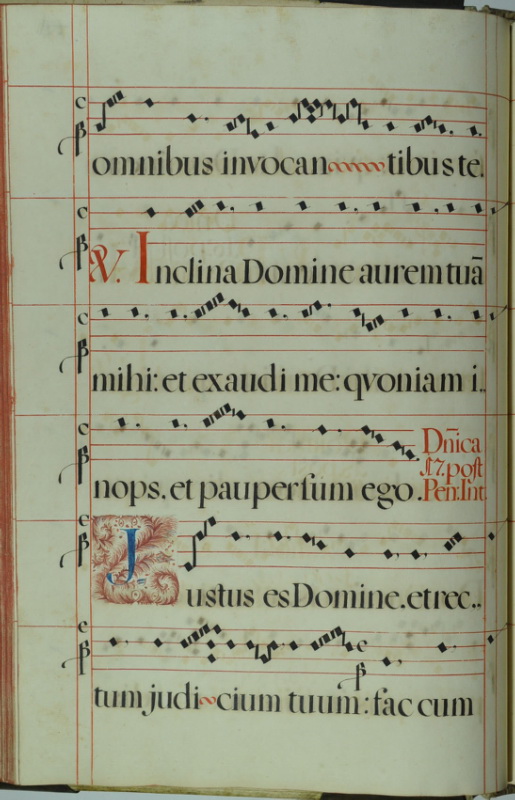 omnibus invocan tibus te.
V. Inclina Domine aurem tuā
mihi: et exaudi me: qvoniam i..
nops. et pauper sum ego.
Dn̄ica
17. post
Pen: Int
Justus es Domine. et rec..
tum judicium tuum: fac cum